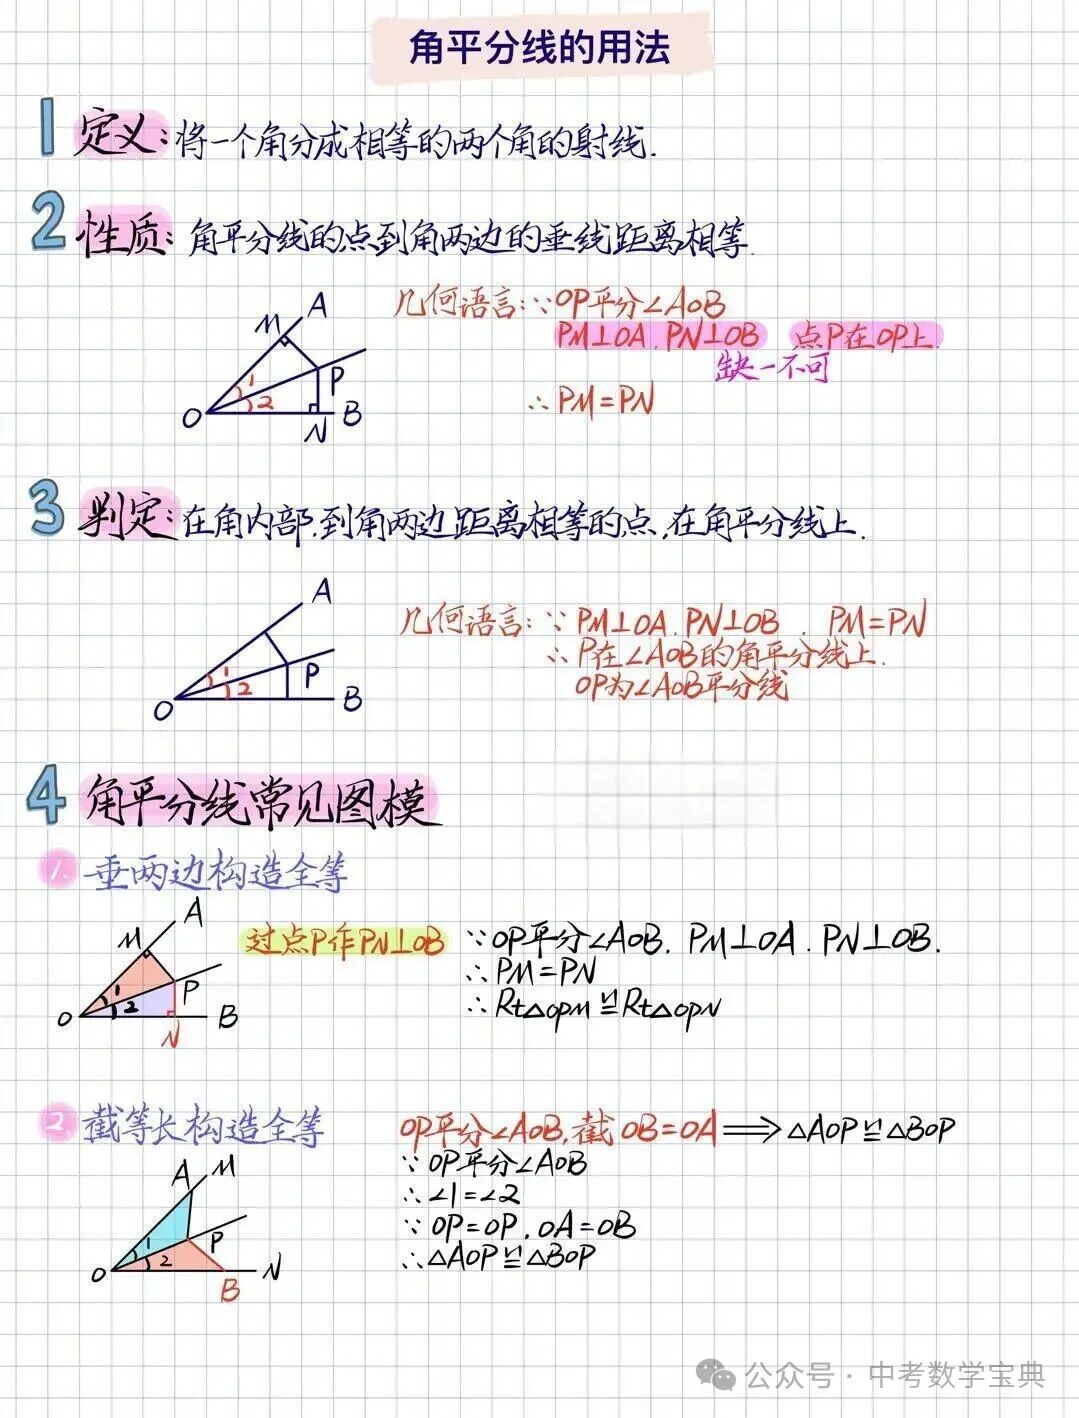 角平分线的用法
1 定义：将一个角分成相等的两个角的射线.
2 性质：角平分线的点到角两边的垂线距离相等.
几何语言：∵OP平分∠AOB
PM⊥OA，PN⊥OB 点P在OP上.
缺一不可
∴PM=PN
A
M
P
1
2
O
N
B
3 判定：在角内部，到角两边距离相等的点，在角平分线上.
几何语言：∵PM⊥OA，PN⊥OB，PM=PN
∴P在∠AOB的角平分线上.
OP为∠AOB平分线
A
1
2
P
O
B
4 角平分线常见图模
1. 垂两边构造全等
过点P作PN⊥OB
∵OP平分∠AOB，PM⊥OA，PN⊥OB.
∴PM=PN
∴Rt△OPM≌Rt△OPN
A
M
P
1
2
O
B
N
2. 截等长构造全等
OP平分∠AOB，截OB=OA⟹△AOP≌△BOP
∵OP平分∠AOB
∴∠1=∠2
∵OP=OP，OA=OB
∴△AOP≌△BOP
A
M
P
1
2
O
B
N
公众号·中考数学宝典